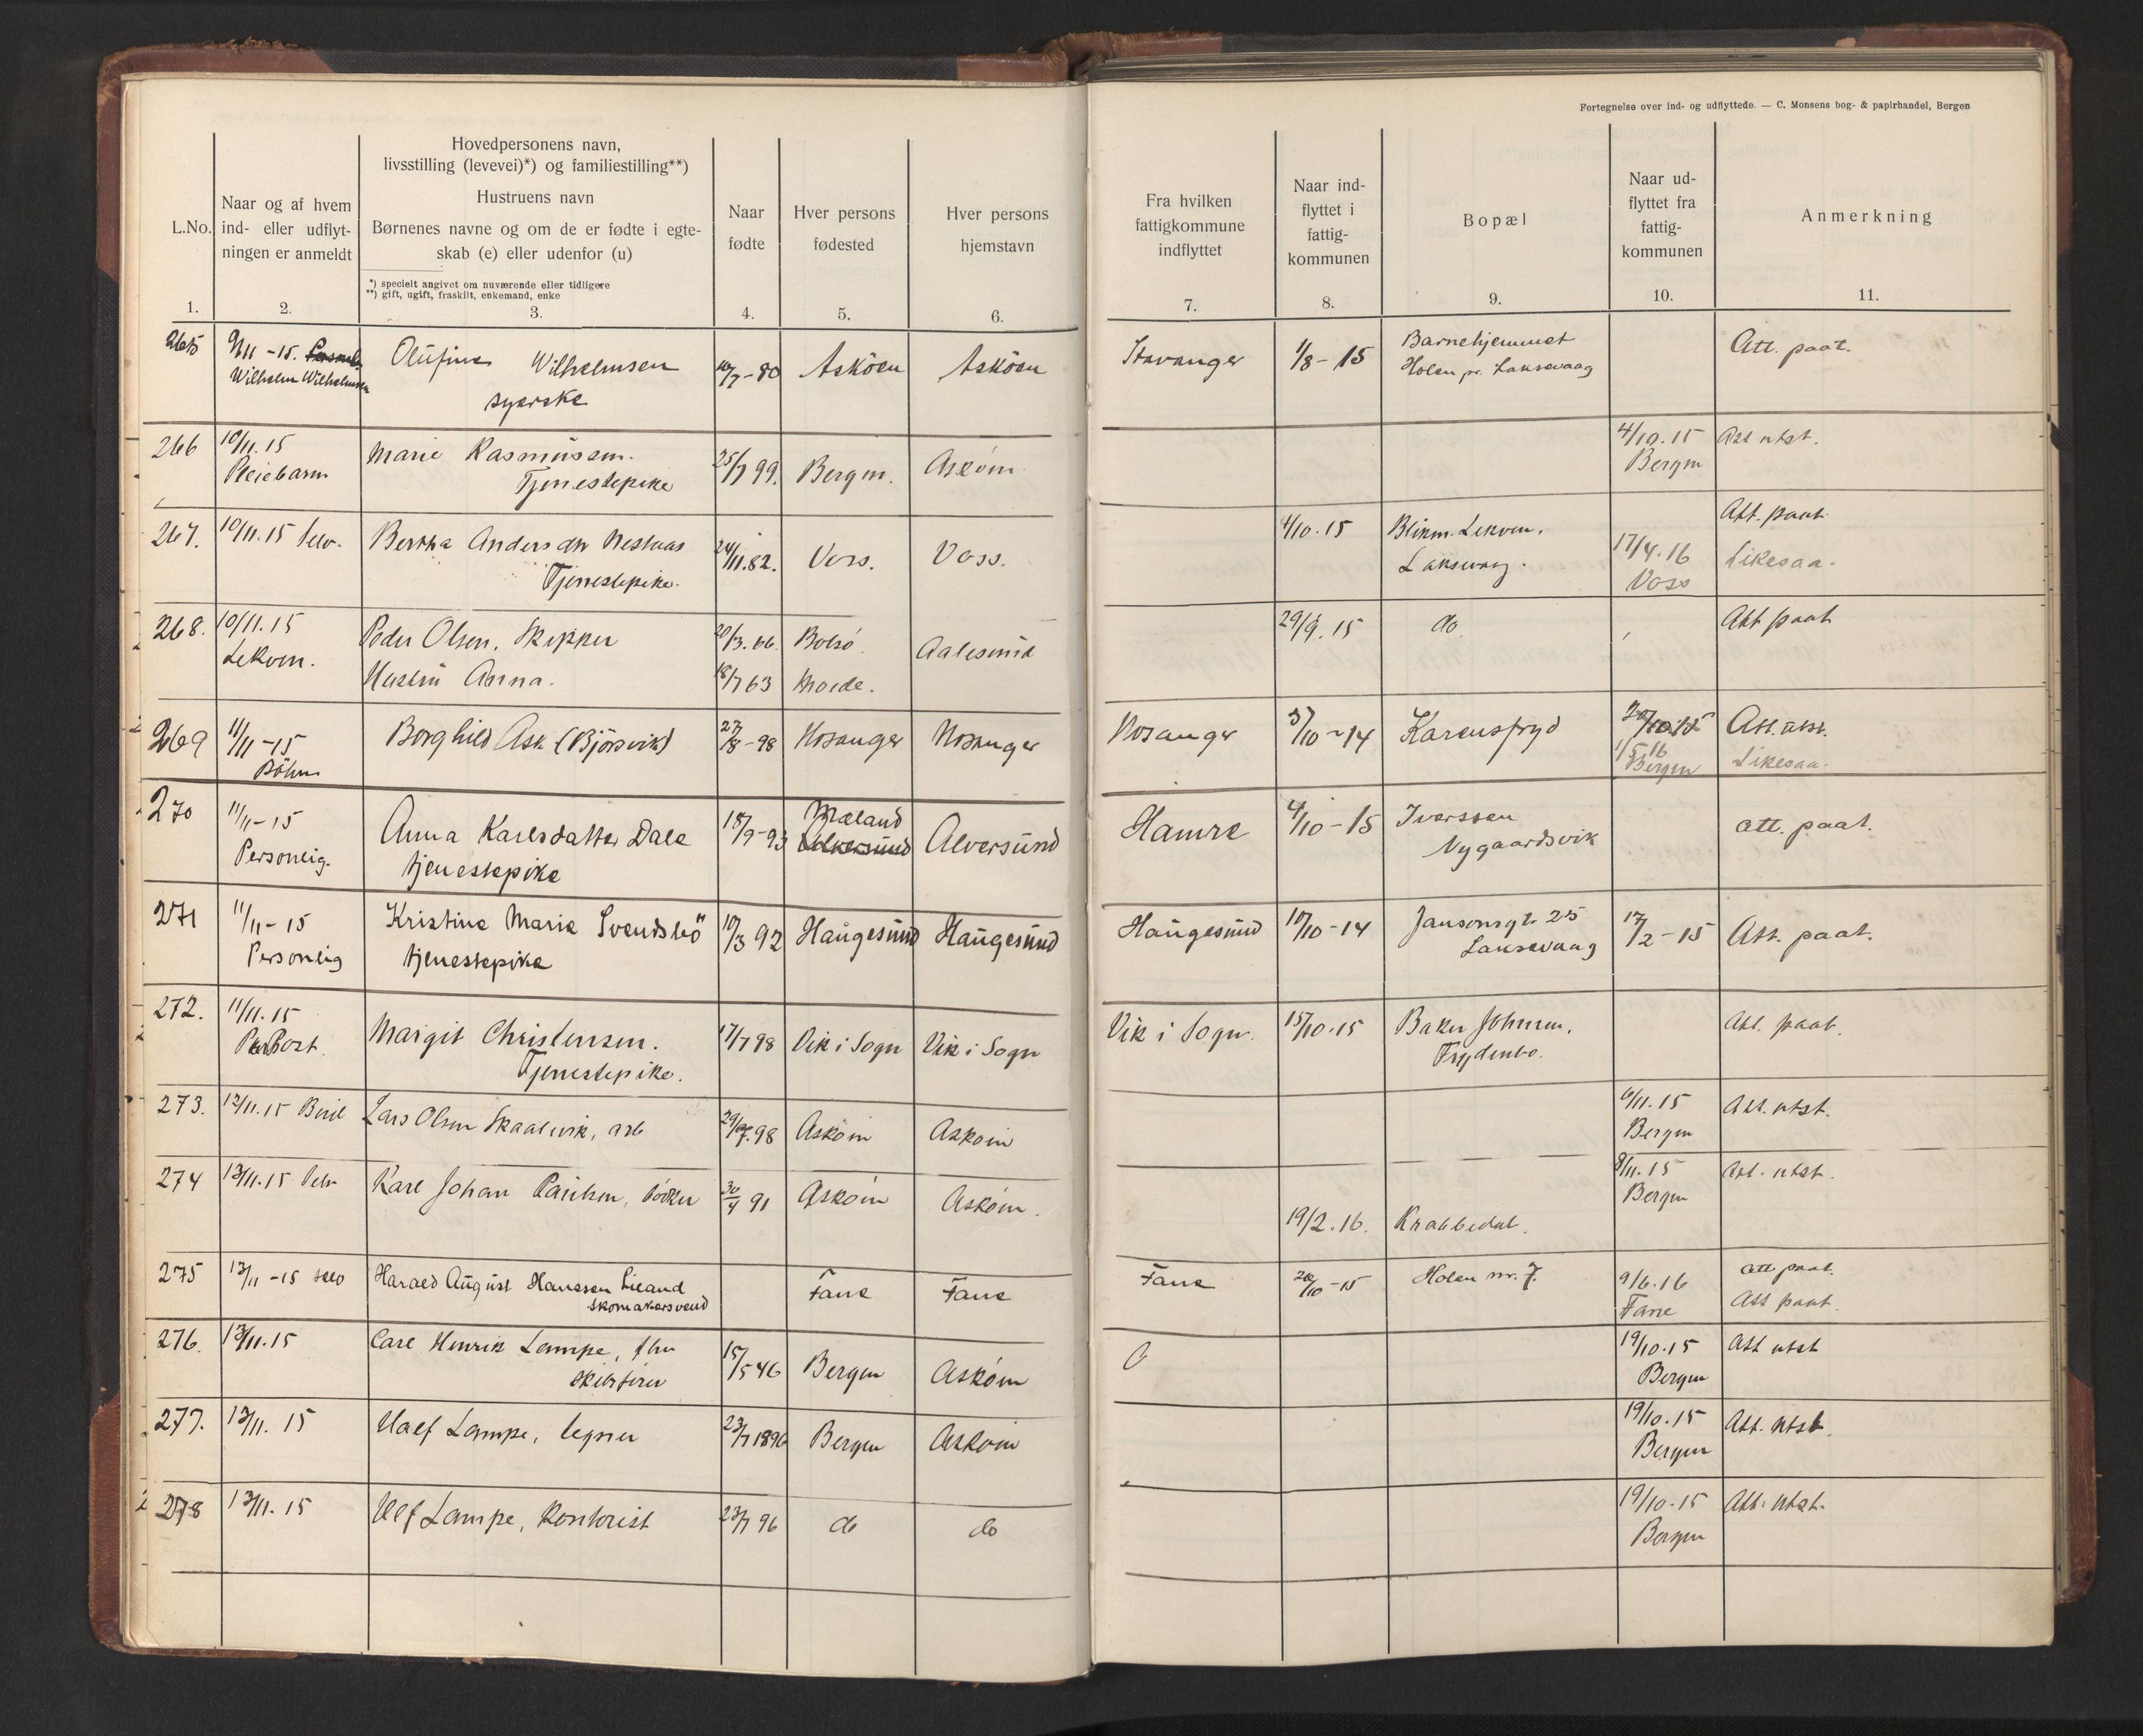 Fortegnelse over ind- og udflyttede. — C. Monsens bog- & papirhandel, Bergen
L.No.
1.
Naar og af hvem
ind- eller udflyt-
ningen er anmeldt
2.
Hovedpersonens navn,
livsstilling (levevei)*) og familiestilling**)
Hustruens navn
Børnenes navne og om de er fødte i egte-
skab (e) eller udenfor (u)
*) specielt angivet om nuværende eller tidligere
**) gift, ugift, fraskilt, enkemand, enke
3.
Naar
fødte
4.
Hver persons
fødested
5.
Hver persons
hjemstavn
6.
Fra hvilken
fattigkommune
indflyttet
7.
Naar ind-
flyttet i
fattig-
kommunen
8.
Bopæl
9.
Naar ud-
flyttet fra
fattig-
kommunen
10.
Anmerkning
11.
265 9/11 -15. Wilhelm Wilhelmsen
Olufine Wilhelmsen
syerske
/7-80 Asköen Asköen
Stavanger 1/8-15 Barnehjemmet
Holen pr. Laksevaag
Att. paat.
266 10/11.15
Pleiebarn
Marie Rasmussen.
Tjenestepike
25/7 99. Bergen. Askøen
4/10.15
Bergen
Att utst.
267. 10/11.15 selv.
Bertha Andersdtr Nestaas
Tjenestepike.
24/11.82. Voss. Voss.
4/10.15 Blikm. Lekven.
Laksevaag.
17/4.16
Voss
Att. paat.
Likesaa.
268. 10/11.15
Lekven.
Peder Olsen. Skipper
Hustru Anna.
20/3.66. Bolsø
18/7 63 Molde.
Aalesund
29/9.15 do
Att paat
269 11/11-15
Böhm
Borghild Ask (Bjørsvik)
27/8-98 Hosanger Hosanger
Hosanger 3/10-14 Karensfryd
1/5.16
Bergen
Att. utst.
Likesaa.
270 11/11-15
Personlig.
Anna Karlsdatter Dale
tjenestepike
18/9-93 Mæland
Alversund
Alversund
Hamre 4/10-15 Iverssen
Nygaardsvik
Att. paat.
271 11/11-15
Personlig
Kristine Marie Svendsbö
tjenestepike
10/3 92 Haugesund Haugesund
Haugesund 10/10-14 Jansonsgt. 25
Laksevaag
17/2-15 Att. paat.
272. 11/11.15
Per Post.
Margit Christensen.
Tjenestepike.
17/7 98 Vik i Sogn Vik i Sogn
Vik i Sogn. 15/10.15 Baker Johnsen.
Frydenbo.
Att. paat.
273. 12/11.15
Lars Olsen Skaalvik, arb
29/7.98 Askøen Askøen
6/11.15
Bergen
Att. utst.
274 13/11.15 Selv
Karl Johan Paulsen, bødker
30/4 91 Askøen Askøen.
8/11.15
Bergen
Att. utst.
19/2.16. Krabbedal.
275 13/11-15 selv
Harald August Hanssen Liland
skomakersvend
Fane Fane
Fane 20/10-15 Holen nr. 7.
9/6.16
Fane
Att paat.
Att paat.
276. 13/11.15
Carl Henrik Lampe, fhv
skibsfører
15/5 46 Bergen Askøen
19/10.15
Bergen
Att utst
277. 13/11.15
Ulf Lampe, tegner
23/7 1896 Bergen Askøen
19/10.15
Bergen
Att. utst.
278 13/11.15
Ulf Lampe, Kontorist
23/7 96 do do
19/10-15
Bergen
Att. utst.